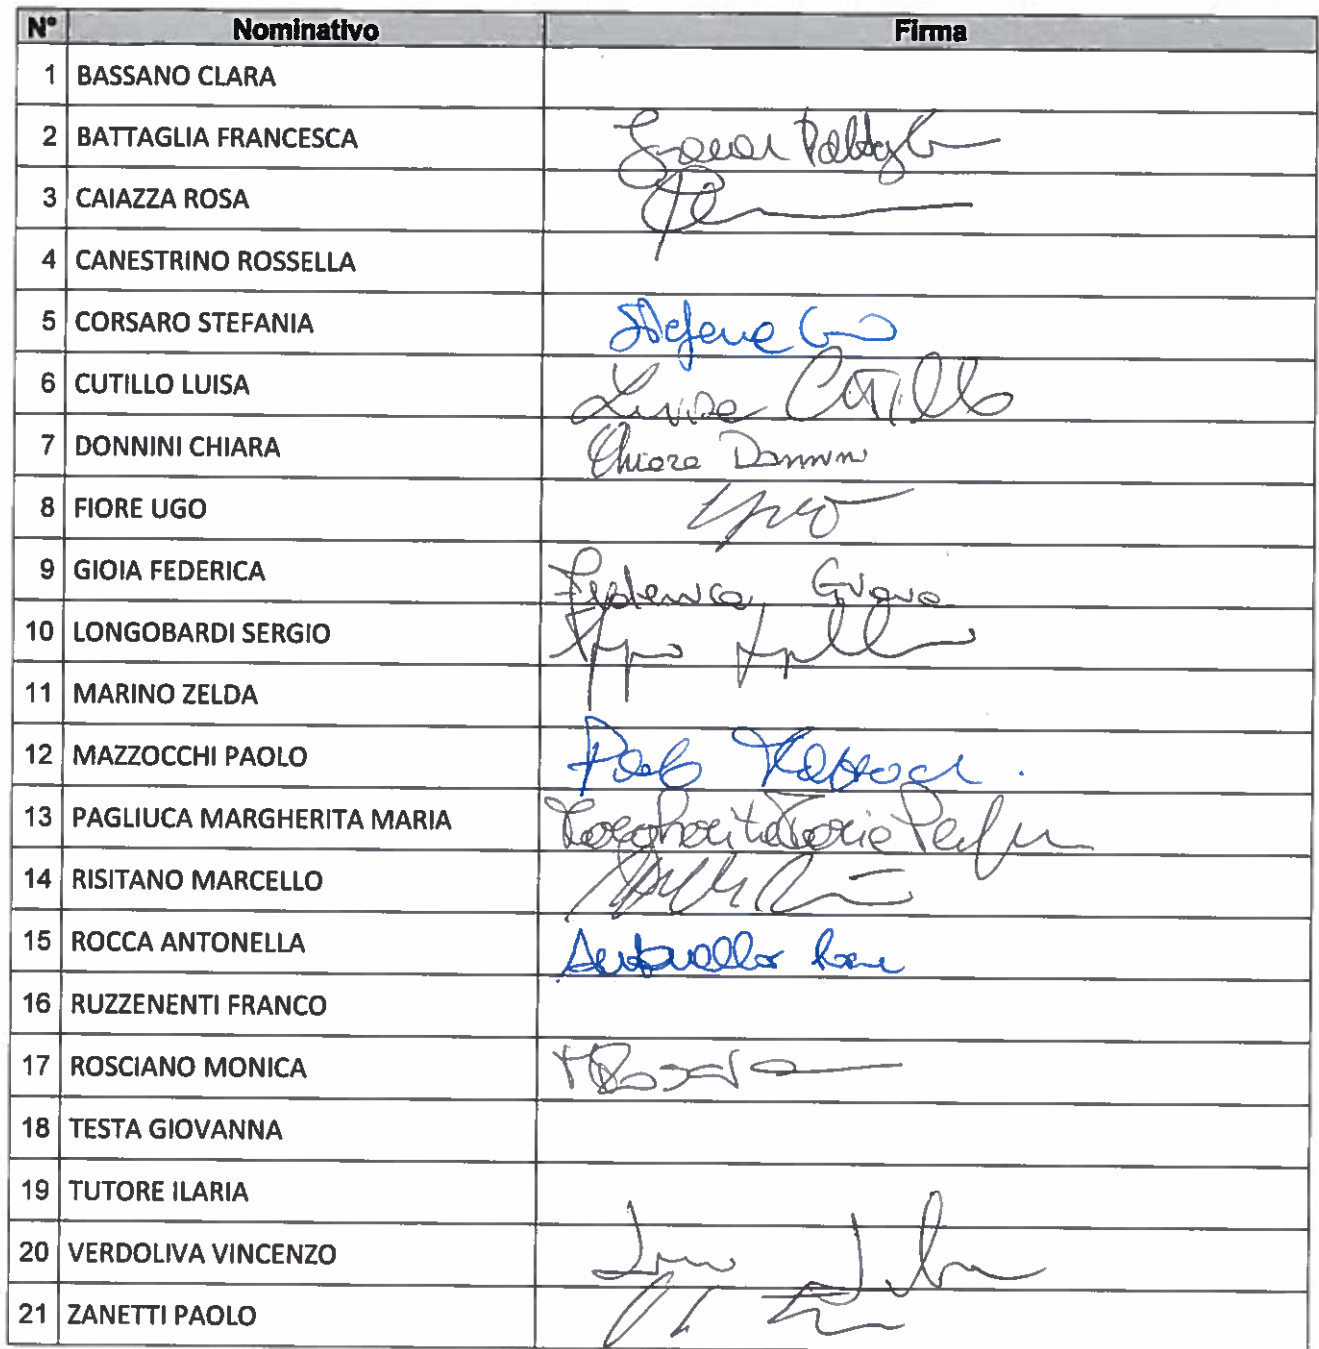 N° Nominativo Firma
1 BASSANO CLARA
2 BATTAGLIA FRANCESCA
3 CAIAZZA ROSA
4 CANESTRINO ROSSELLA
5 CORSARO STEFANIA
6 CUTILLO LUISA Luisa Cutillo
7 DONNINI CHIARA Chiara Donnini
8 FIORE UGO
9 GIOIA FEDERICA Federica Gioia
10 LONGOBARDI SERGIO
11 MARINO ZELDA
12 MAZZOCCHI PAOLO Paolo
13 PAGLIUCA MARGHERITA MARIA Margherita Maria
14 RISITANO MARCELLO
15 ROCCA ANTONELLA Antonella
16 RUZZENENTI FRANCO
17 ROSCIANO MONICA
18 TESTA GIOVANNA
19 TUTORE ILARIA
20 VERDOLIVA VINCENZO
21 ZANETTI PAOLO